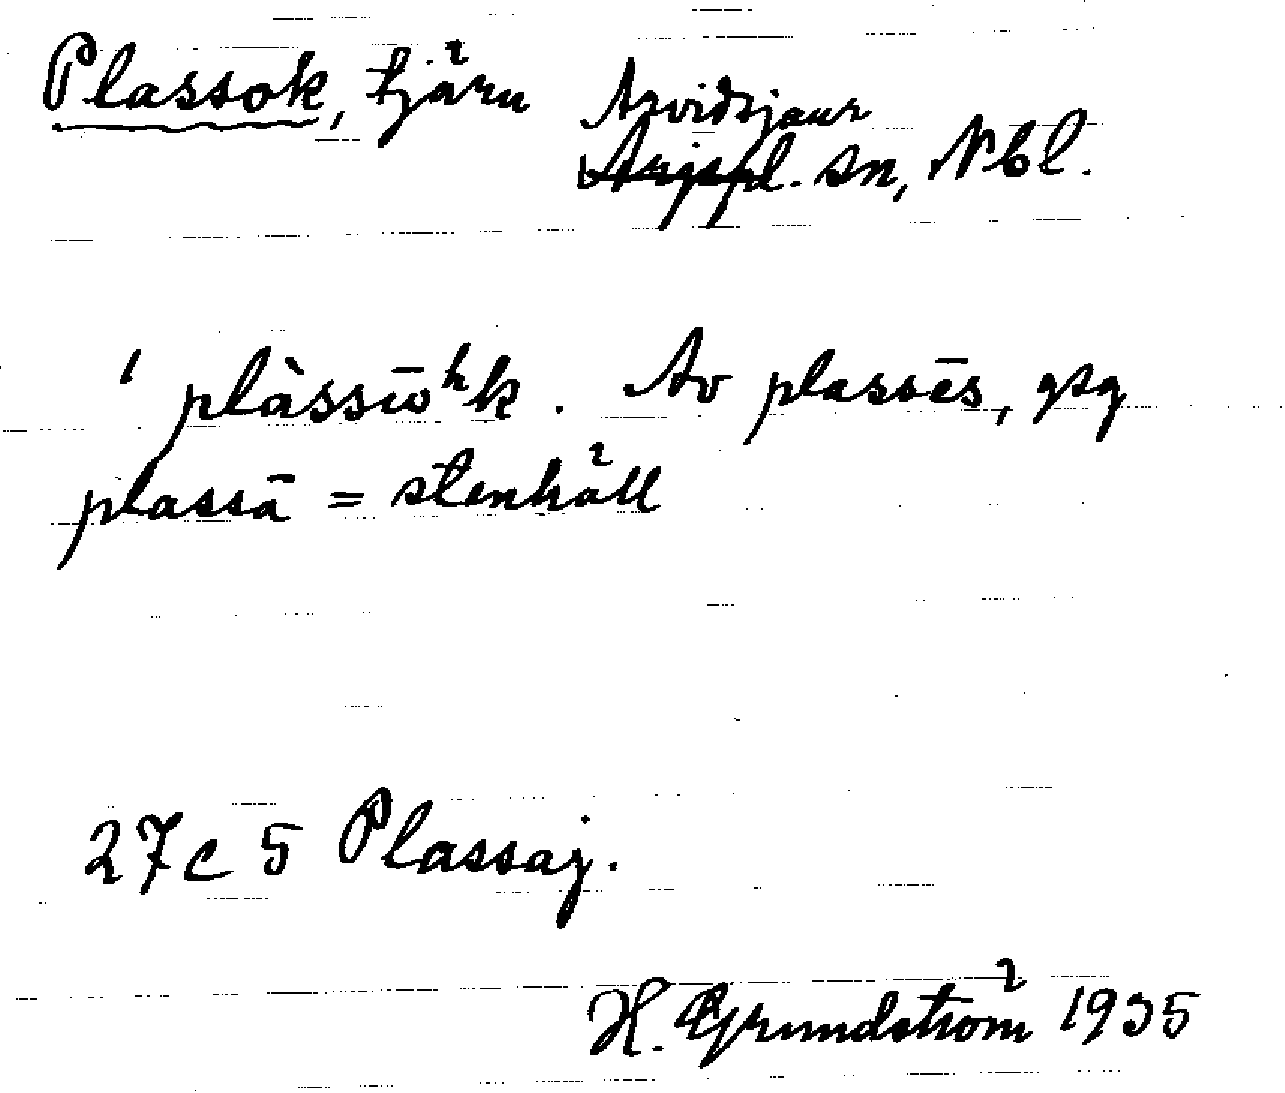 Plassok, tjärn Arvidsjaur
Arjepl. sn, Nbl.
ˈ plàssi̮ōʰk. Av plassēs, gsg
plassā = stenhäll
27c 5 Plassaj.
H. Grundström 1935